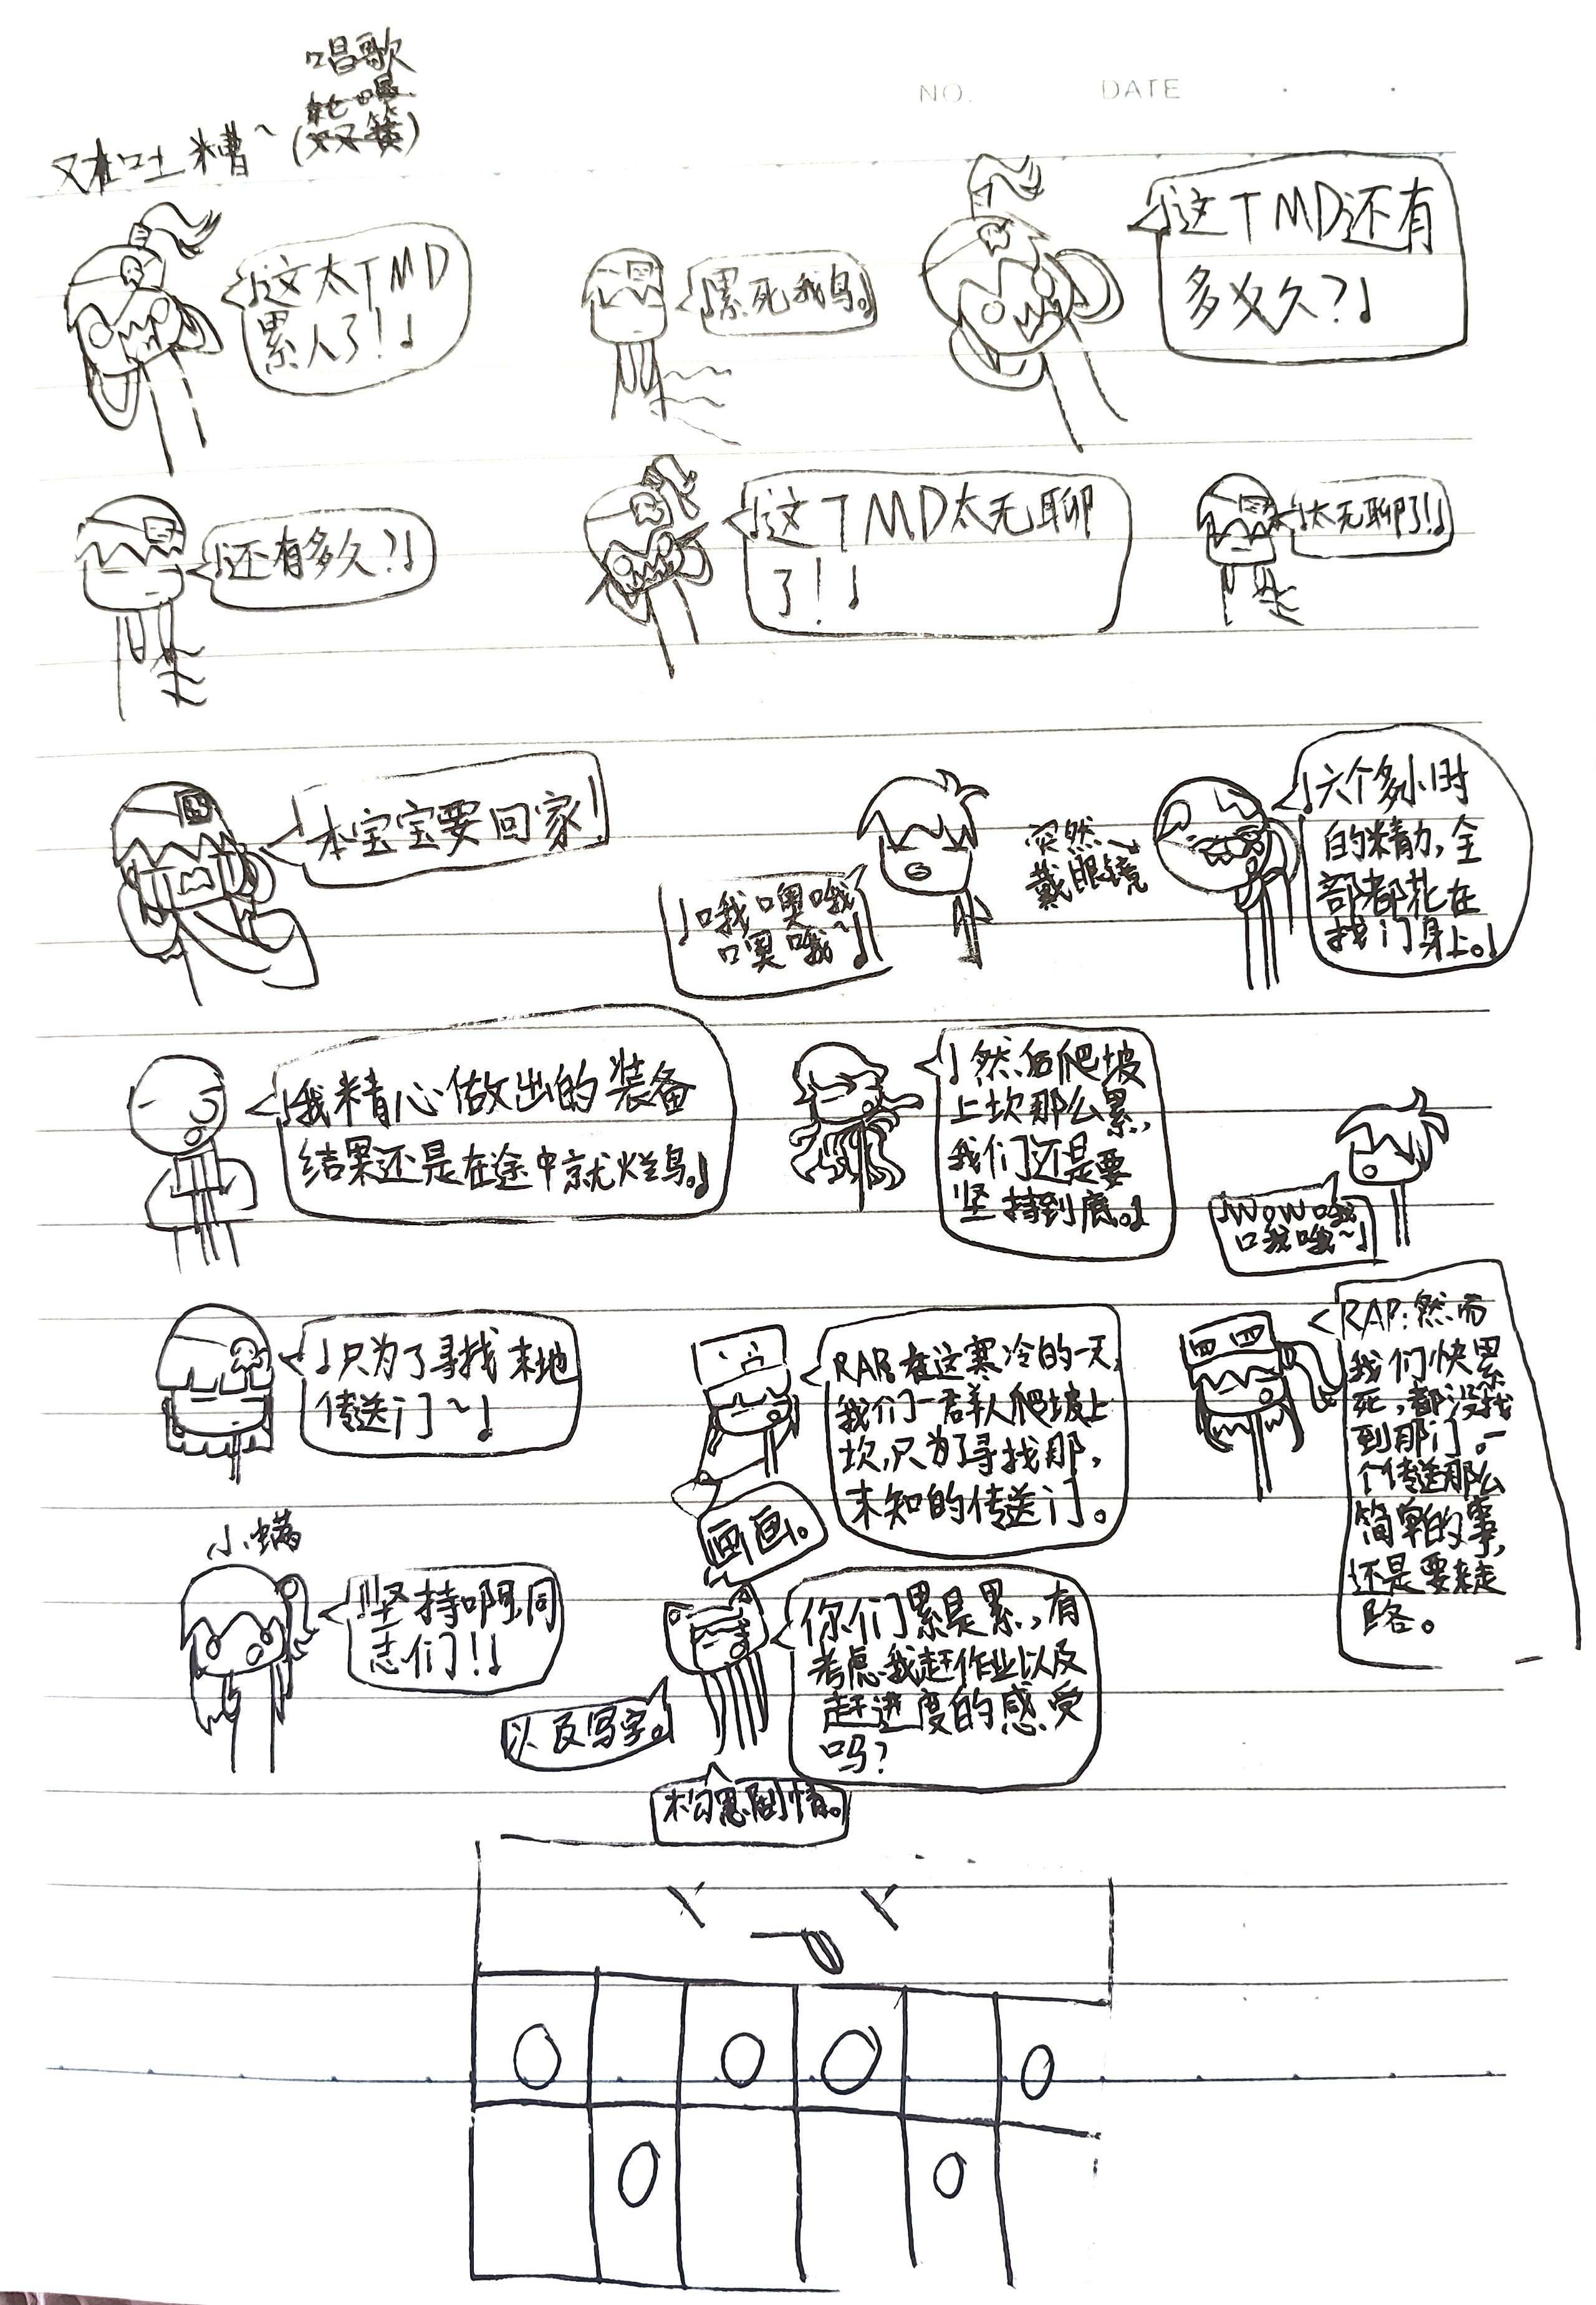 NO.
DATE
唱歌
又在吐槽~
♩这太TMD
累人了!♩
♩累死我鸟。
♩这TMD还有
多久?♩
♩还有多久?♩
♩这TMD太无聊
了!♩
♩太无聊了!♩
♩本宝宝要回家!
♩哦噢哦
噢哦~♩
突然
戴眼镜
♩六个多小时
的精力,全
部都花在
找门身上。♩
♩我精心做出的装备
结果还是在途中就烂鸟。♩
♩然后爬坡
上坎那么累,
我们还是要
坚持到底。♩
♩WOW哦
哦哦~♩
♩只为了寻找末地
传送门~♩
RAP:在这寒冷的一天,
我们一君羊人爬坡上
坎,只为了寻找那,
未知的传送门。
RAP:然而
我们快累
死,都没找
到那门。一
个传送那么
简单的事,
还是要来走
路。
小螨
♩坚持啊同
志们!♩
画画。
你们累是累,有
考虑我赶作业以及
赶进度的感受
吗?
以及写字。
构思剧情。